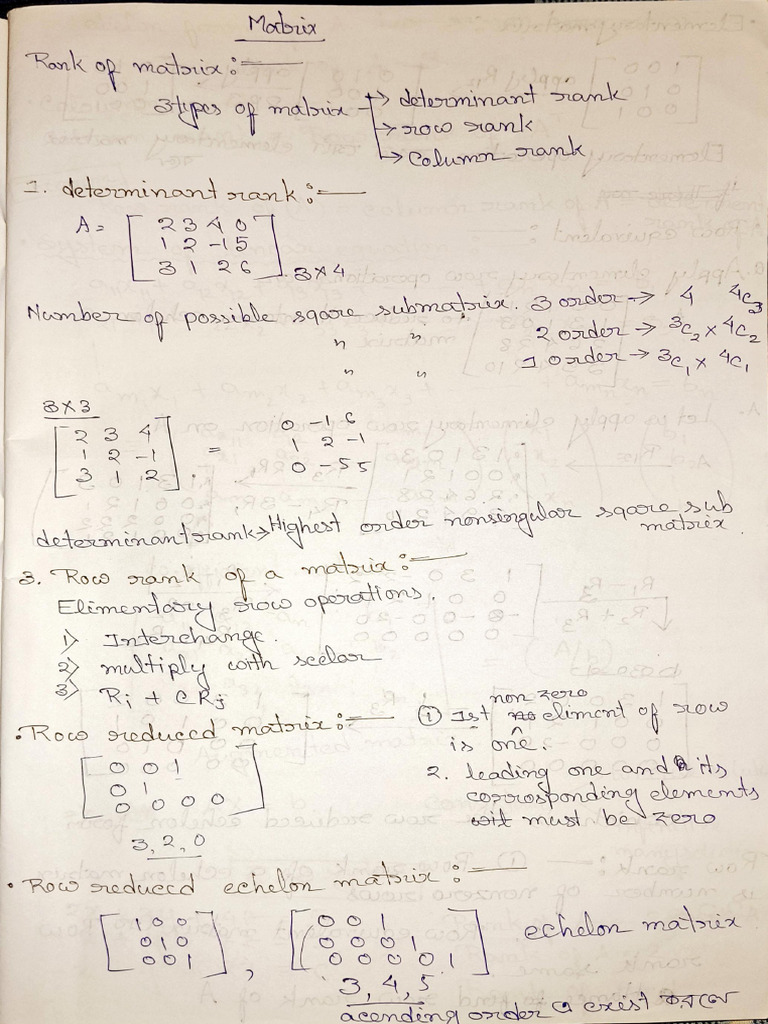 Matrix
Rank of matrix :—
3 types of matrix → determinant rank
→ row rank
→ Column rank
1. determinant rank :—
A = [ 2 3 4 0
1 2 -1 5
3 1 2 6 ] 3×4
Number of possible sqare submatrix. 3 order → 4 4c3
" " 2 order → 3c2 × 4c2
" " 1 order → 3c1 × 4c1
3×3
[ 2 3 4
1 2 -1
3 1 2 ] =
0 -1 6
1 2 -1
0 -5 5
determinant rank → Highest order nonsingular sqare sub
matrix
3. Row rank of a matrix :—
Elimentary row operations.
1> Interchange.
2> multiply with scelar
3> Ri + CRj
• Row reduced matrix :— ① Ist non zero eliment of row
is one.
[ 0 0 1
0 1
0 0 0 0 ]
2. leading one and its
corrosponding elements
must be zero
3, 2, 0
• Row reduced echelon matrix :—
[ 1 0 0
0 1 0
0 0 1 ] ,
[ 0 0 1
0 0 0 1
0 0 0 0 1 ] echelon matrix
3, 4, 5
acending order এ exist করবে